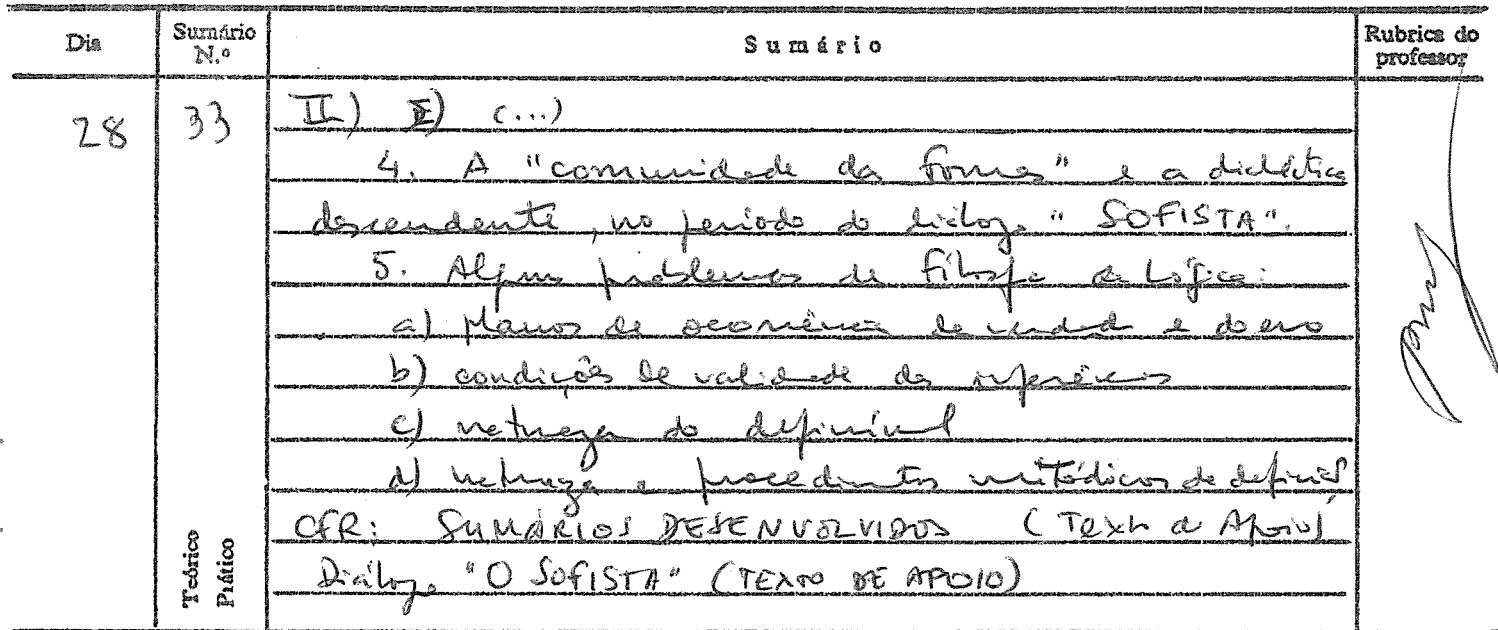 Dia Sumário N.º Sumário Rubrica do professor
28 33 II) I) (...)
4. A "comunidade das formas" e a dialéctica
descendente, no período do diálogo "SOFISTA".
5. Alguns problemas de Filosofia da Lógica:
a) planos de ocorrência da verdade e do erro
b) condições de validade das inferências
c) natureza do definível
d) natureza e procedimentos metódicos de definição
CFR: SUMÁRIOS DESENVOLVIDOS (Texto de Apoio)
Diálogo "O SOFISTA" (TEXTO DE APOIO)
Teórico
Prático